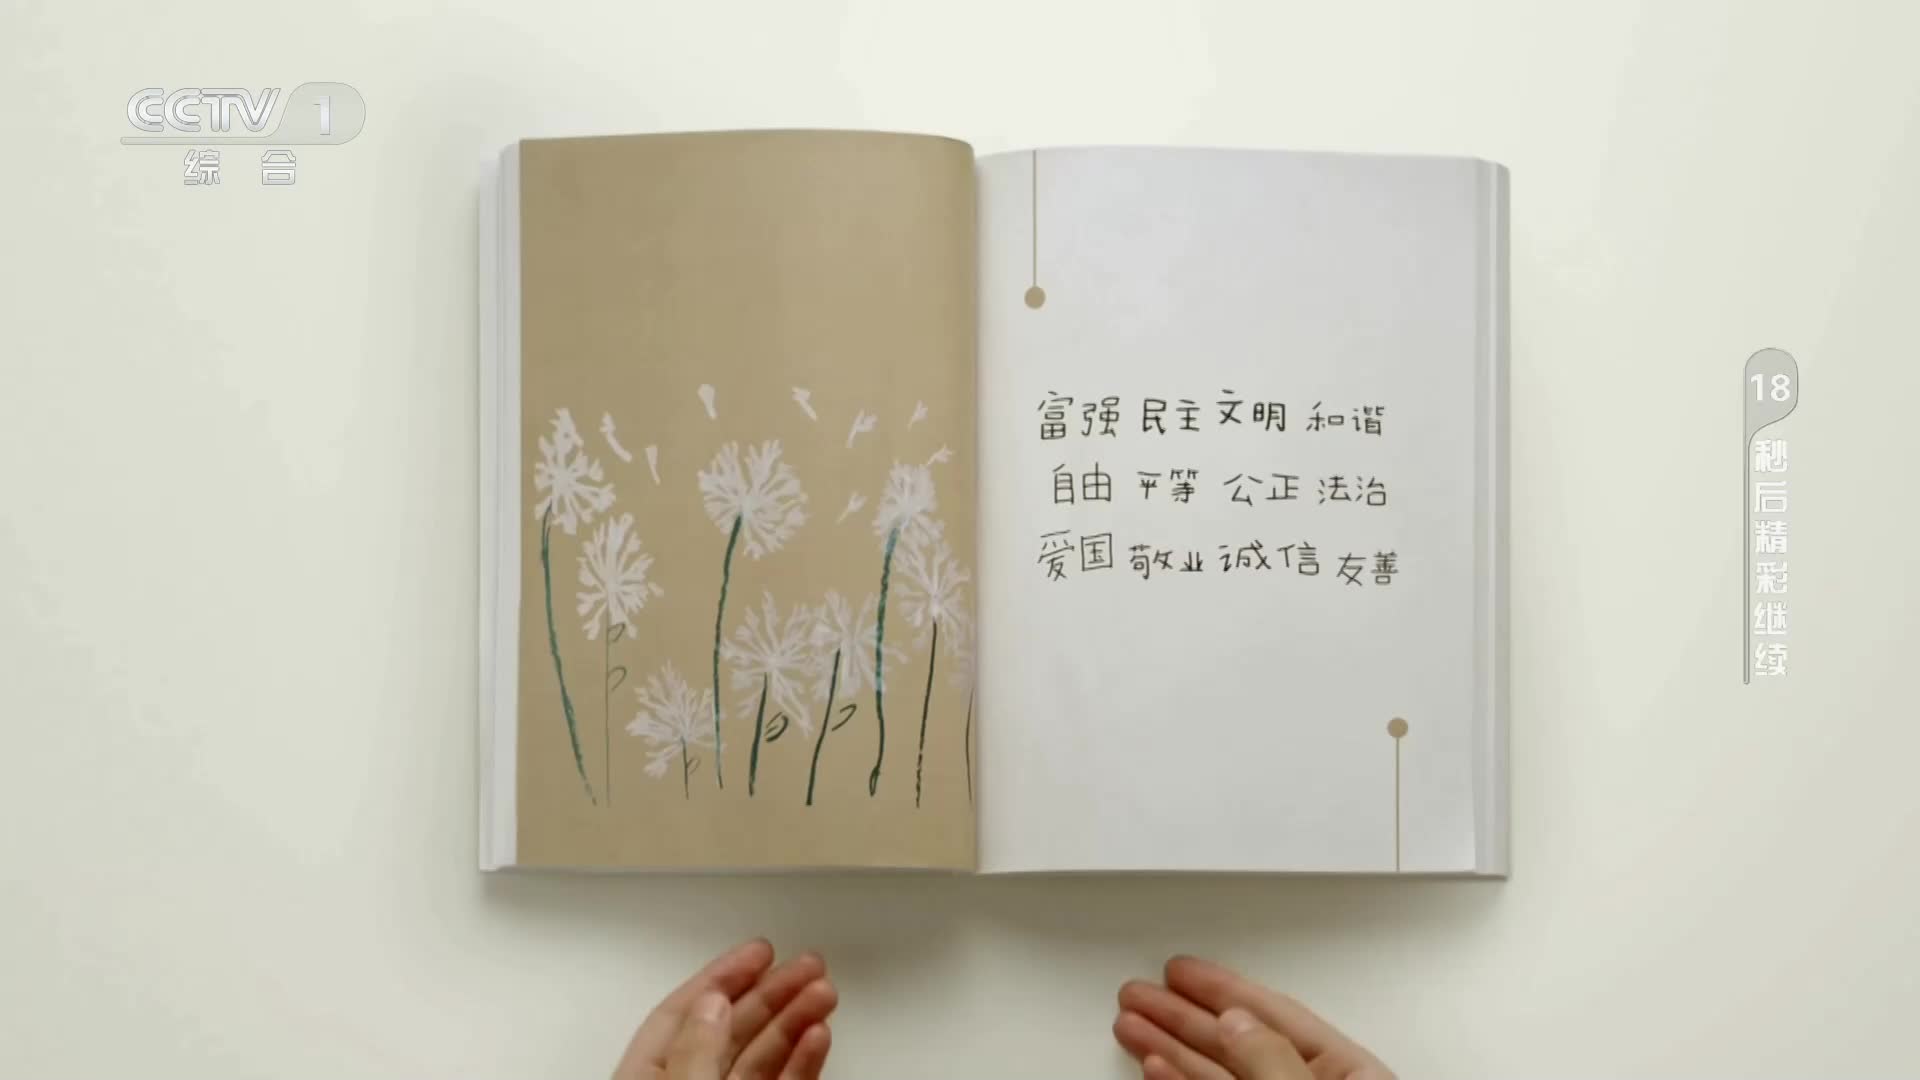 CCTV 1
综 合
富强 民主 文明 和谐
自由 平等 公正 法治
爱国 敬业 诚信 友善
18
秒后精彩继续